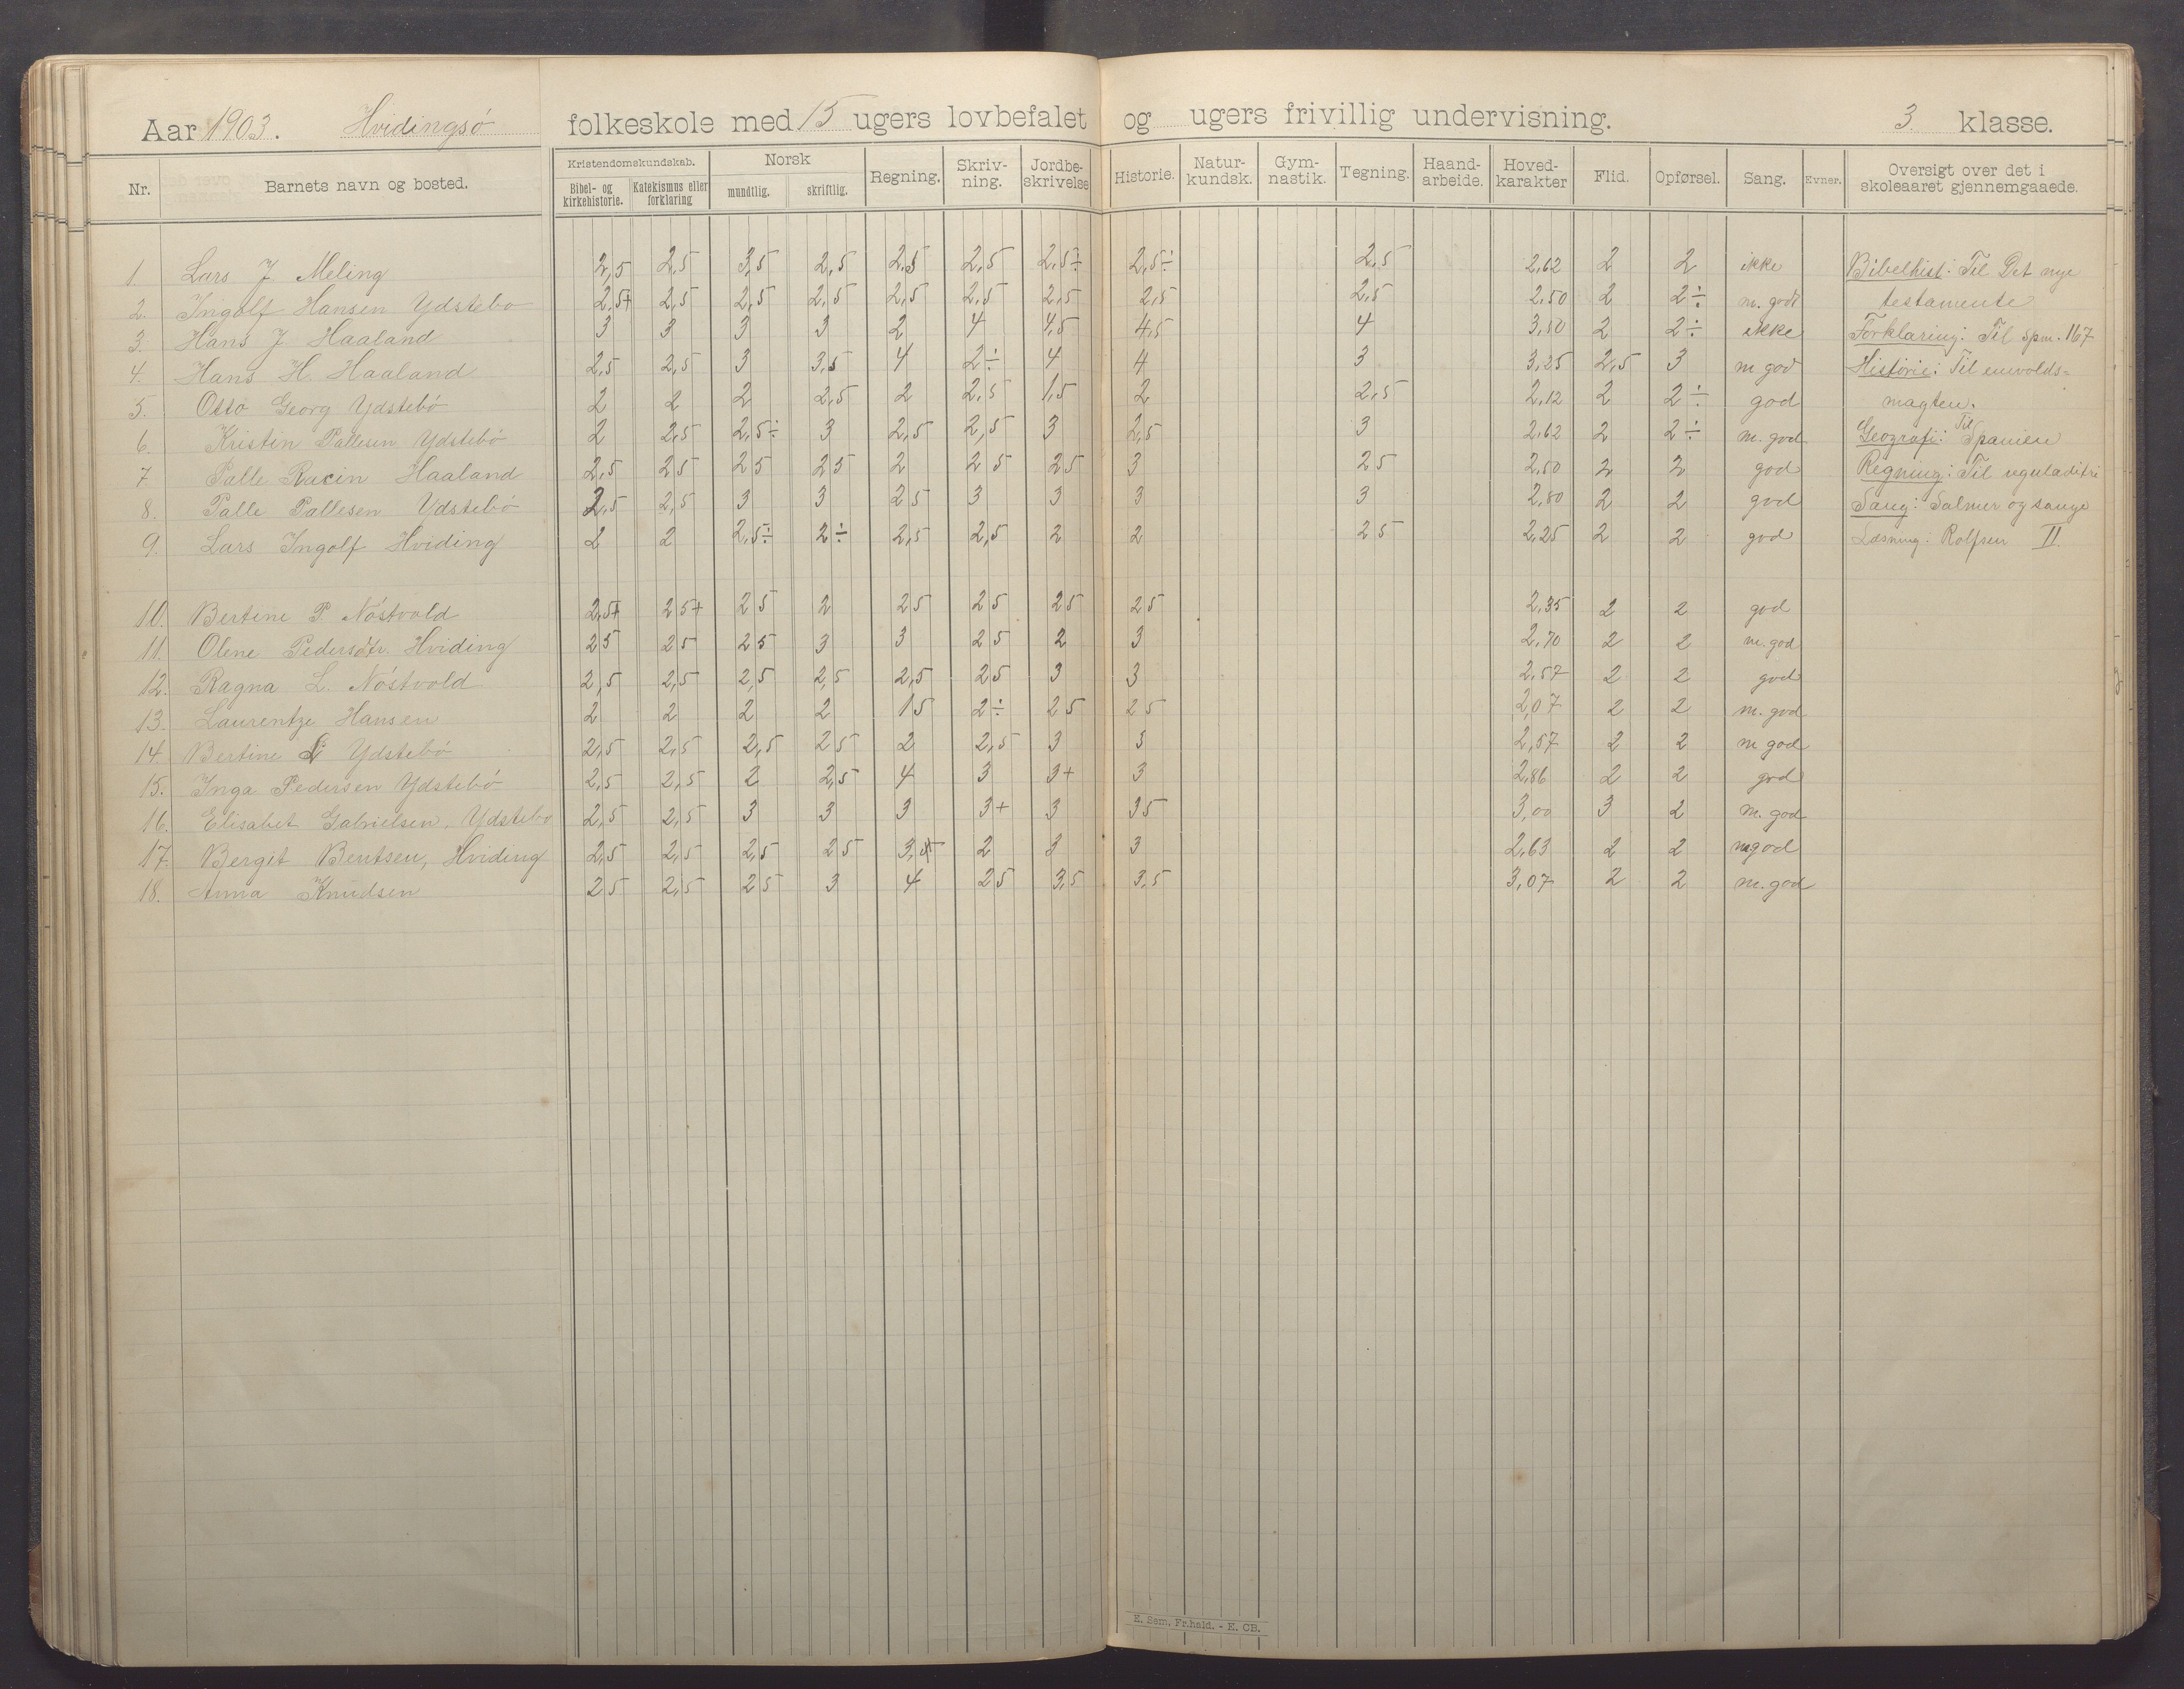 Aar 1903. Hvidingsö folkeskole med 15 ugers lovbefalet og ugers frivillig undervisning. 3. klasse.
Nr. Barnets navn og bosted. Kristendomskundskab. Bibel- og kirkehistorie. Katekismus eller forklaring Norsk mundtlig. skriftlig. Regning. Skriv-ning. Jordbe-skrivelse Historie. Natur-kundsk. Gym-nastik. Tegning. Haand-arbeide. Hoved-karakter Flid. Opførsel. Sang. Evner. Oversigt over det i skoleaaret gjennemgaaede.
1. Lars J. Meling 2,5 2,5 3,5 2,5 2,5 2,5 2,5÷ 2,5÷ 2,5 2,62 2 2 ikke Bibelhist: Til Det nye
2. Ingolf Hansen Ydstebo 2,5+ 2,5 2,5 2,5 2,5 2,5 2,5 2,5 2,5 2,50 2 2÷ m. god testamente
3. Hans J. Haaland 3 3 3 3 2 4 4,5 4,5 4 3,50 2 2÷ ikke Forklaring: Til spm. 167
4. Hans H. Haaland 2,5 2,5 3 3,5 4 2÷ 4 4 3 3,25 2,5 3 m god Historie: Til envolds=
5. Otto Georg Ydstebö 2 2 2 2,5 2 2,5 1,5 2 2,5 2,12 2 2÷ god magten.
6. Kristin Pallesen Ydstebö 2 2,5 2,5÷ 3 2,5 2,5 3 2,5 3 2,62 2 2÷ m. god Geografi: Til Spanien
7 Palle Haaland 2,5 25 25 25 2 25 25 3 25 2,50 2 2 god Regning: Til
8. Palle Pallesen Ydstebö 2,5 2,5 3 3 25 3 3 3 3 2,80 2 2 god Sang: Salmer og sange
9. Lars Ingolf Hviding 2 2 2,5÷ 2÷ 2,5 2,5 2 2 25 2,25 2 2 god Læsning: Rolfsen II.
10. Bertine P. Nöstvold 2,5+ 25+ 25 2 25 25 25 25 2,35 2 2 god
11. Olene Pedersdtr. Hviding 25 25 25 3 3 25 2 3 2,70 2 2 m. god
12. Ragna L. Nöstvold 2,5 2,5 2,5 2,5 2,5 25 3 3 2,57 2 2 god
13. Laurentze Hansen 2 2 2 2 15 2÷ 25 25 2,07 2 2 m. god
14. Bertine Ydstebö 2,5 2,5 2,5 25 2 2,5 3 3 2,57 2 2 m god
15. Inga Pedersen Ydstebö 2,5 2,5 2 2,5 4 3 3+ 3 2,86 2 2 god
16. Elisabet Gabrielsen, Ydstebo 2,5 2,5 3 3 3 3+ 3 35 3,00 3 2 m. god
17. Bergit Bentsen, Hviding 2,5 2,5 2,5 25 3,5 2 3 3 2,63 2 2 m god
18. Anna Knudsen 25 2,5 25 3 4 25 3,5 3,5 3,07 2 2 m. god
E. Sem, Fr.hald. - E. CB.